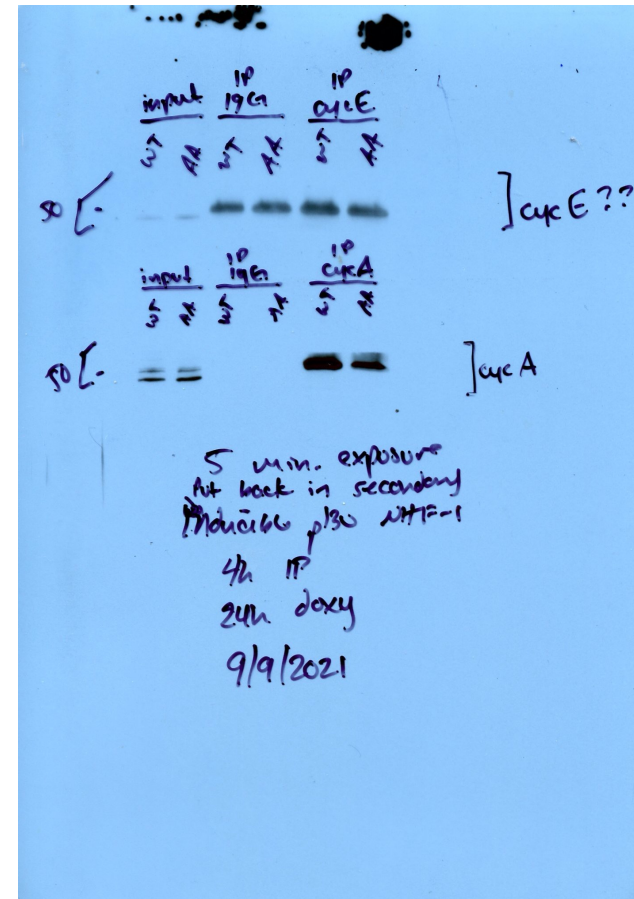 input IP IgG IP cycE
WT AA WT AA WT AA
50 [- ] cyc E ??
input IP IgG IP cycA
WT AA WT AA WT AA
50 [- ] cyc A
5 min. exposure
Put back in secondary
Inducible p130 NHF-1
4h IP
24h doxy
9/9/2021